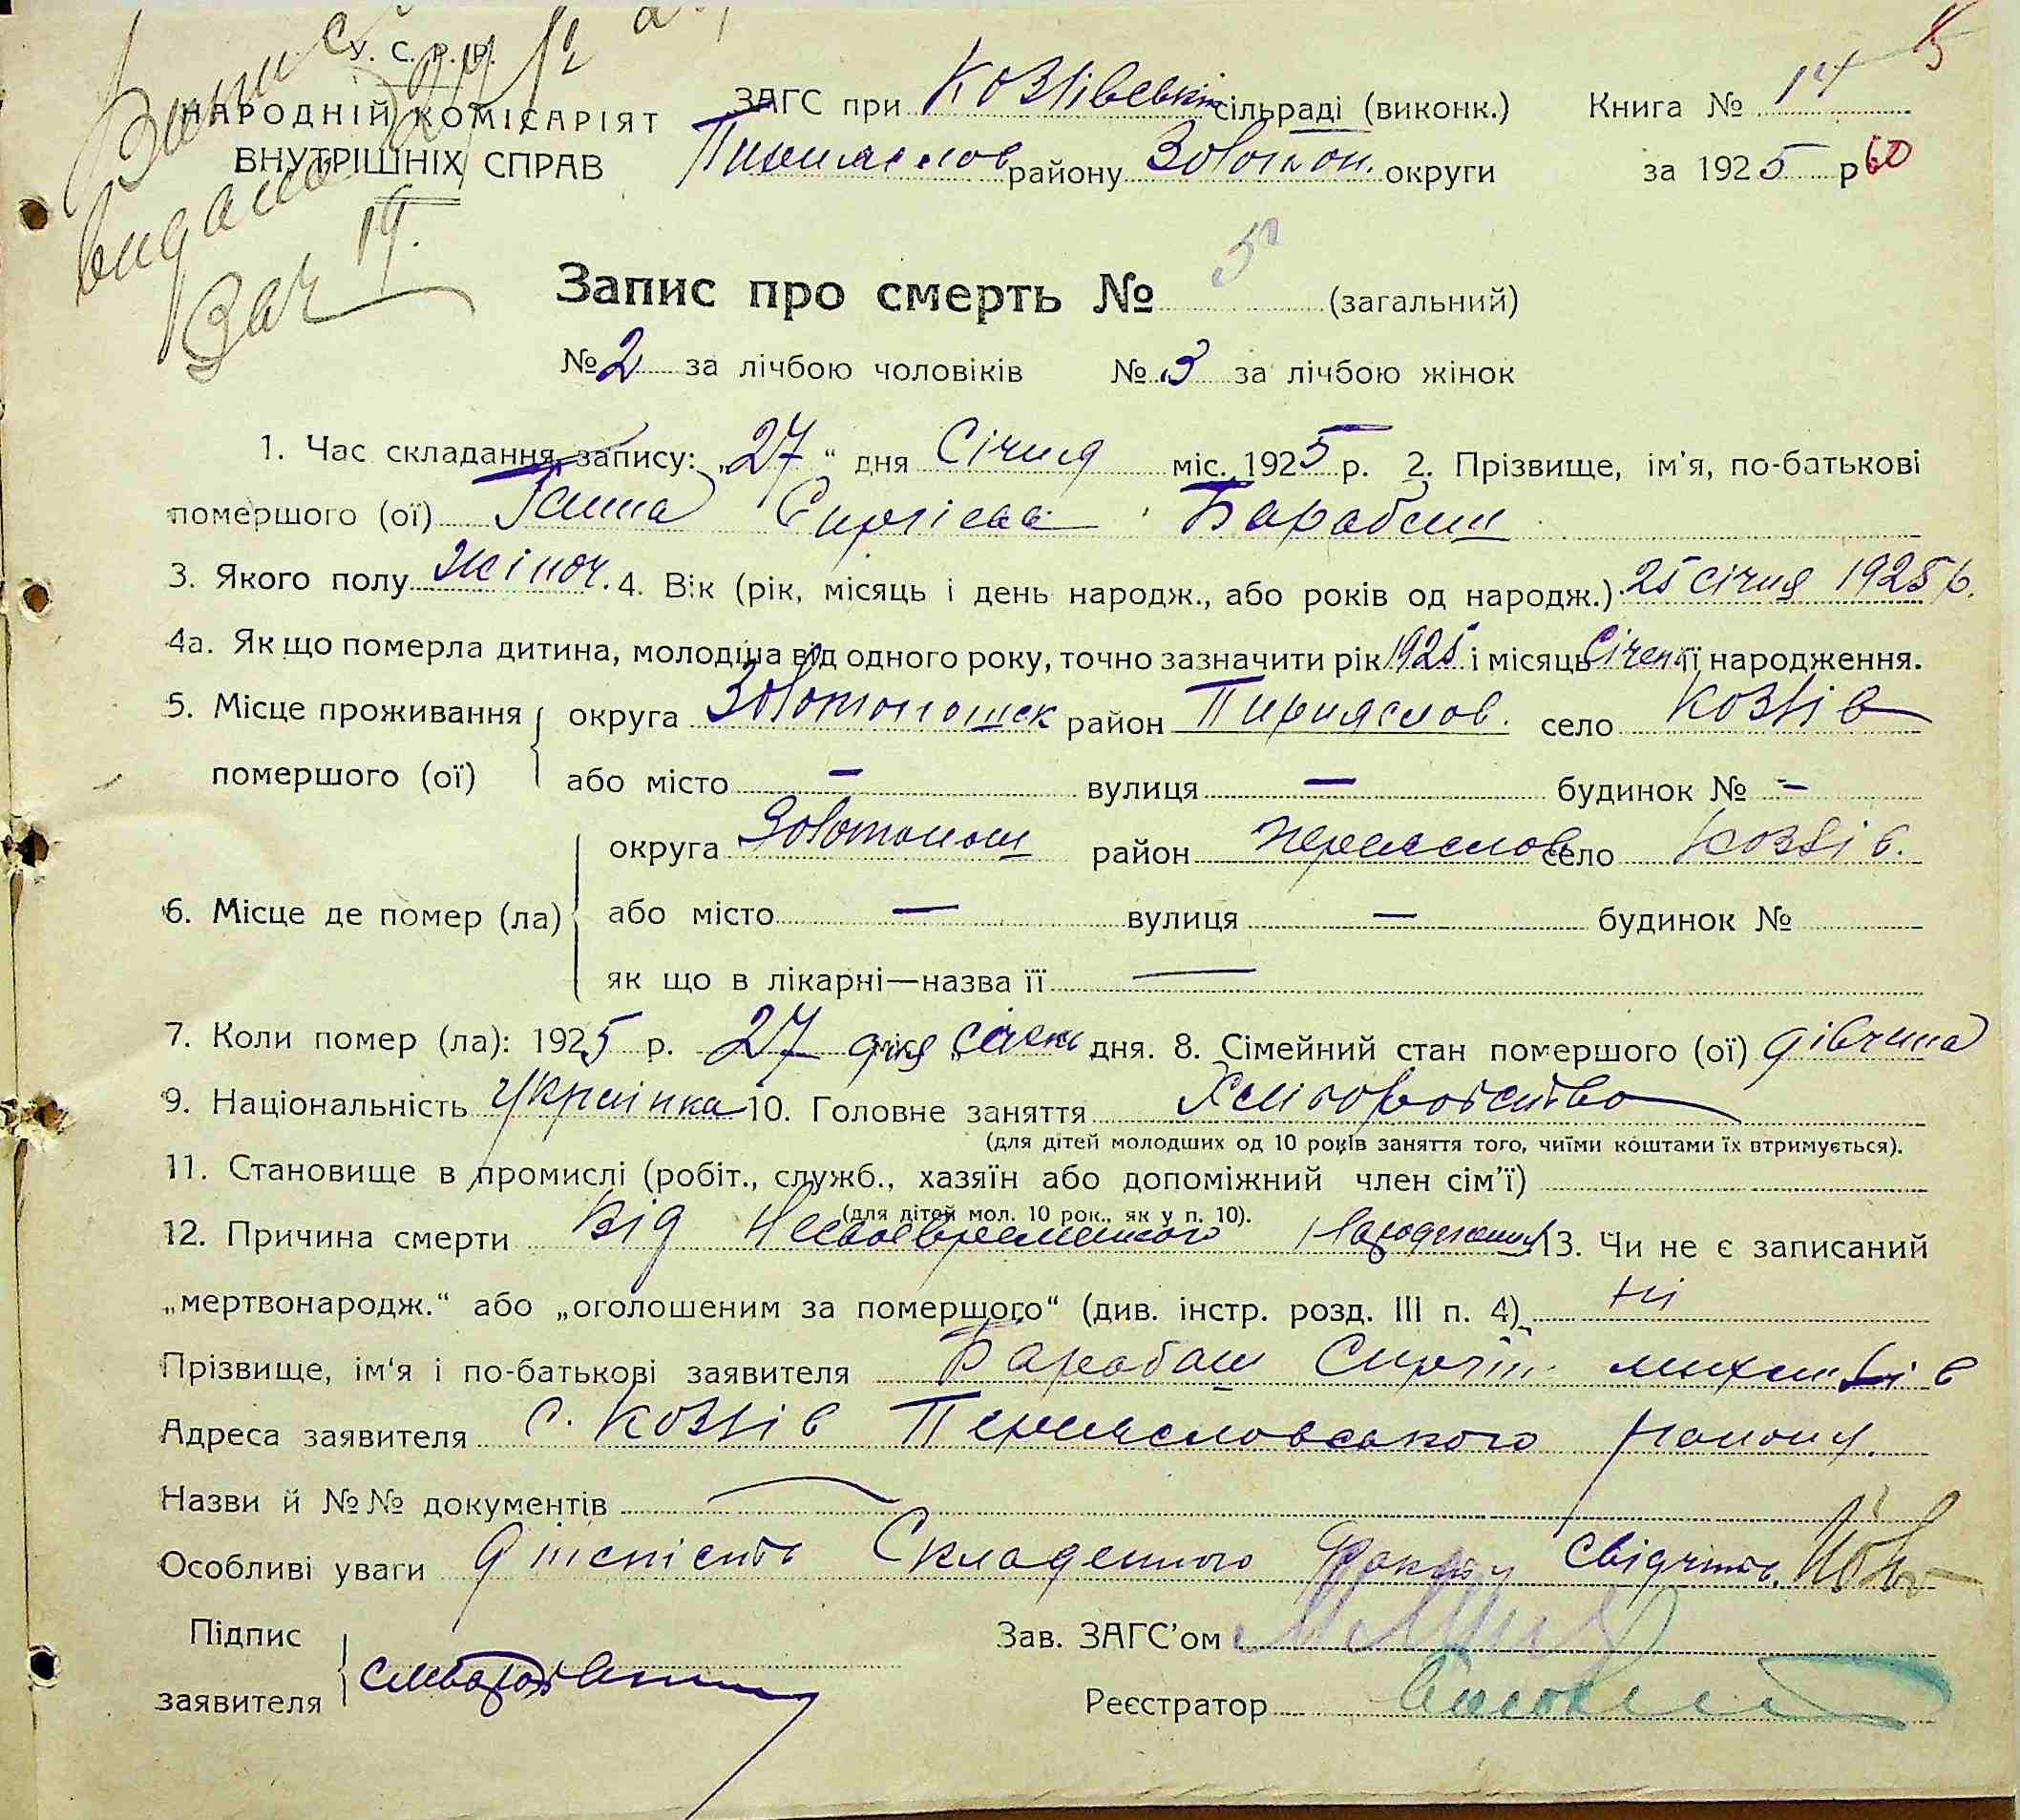 У. С. Р. Р.
НАРОДНІЙ КОМІСАРІЯТ
ВНУТРІШНІХ СПРАВ
ЗАГС при Козлівській сільраді (виконк.)
району Золотон. округи
Книга № 14
за 1925 р 60
видано
Запис про смерть № 5 (загальний)
№ 2 за лічбою чоловіків № 3 за лічбою жінок
1. Час складання запису: „27“ дня Січня міс. 1925 р. 2. Прізвище, ім'я, по-батькові
помершого (ої) Ганна Сиргієва Барабаш
3. Якого полу жіноч. 4. Вік (рік, місяць і день народж., або років од народж.) 25 січня 1925 р.
4а. Як що померла дитина, молодша від одного року, точно зазначити рік 1925 і місяць Січень її народження.
5. Місце проживання помершого (ої) округа Золотоношск район Пирияслов. село Козлів
або місто — вулиця — будинок № -
6. Місце де помер (ла) округа Золотонош район Переяслов село Козлів.
або місто — вулиця — будинок №
як що в лікарні—назва її —
7. Коли помер (ла): 1925 р. 27 дня січень дня. 8. Сімейний стан помершого (ої) дівчина
9. Національність Українка 10. Головне заняття Хліборобство
(для дітей молодших од 10 років заняття того, чиїми коштами їх втримується).
11. Становище в промислі (робіт., служб., хазяїн або допоміжний член сім'ї)
(для дітей мол. 10 рок., як у п. 10).
12. Причина смерти Від Несвоєвременного Народження 13. Чи не є записаний
„мертвонародж.“ або „оголошеним за помершого“ (див. інстр. розд. III п. 4) ні
Прізвище, ім'я і по-батькові заявителя Барабаш Сиргій Михайлів
Адреса заявителя с. Козлів Переясловського району.
Назви й №№ документів —
Особливі уваги Дійсність Складенного факту Свідчить
Підпис заявителя
Зав. ЗАГС'ом
Реєстратор